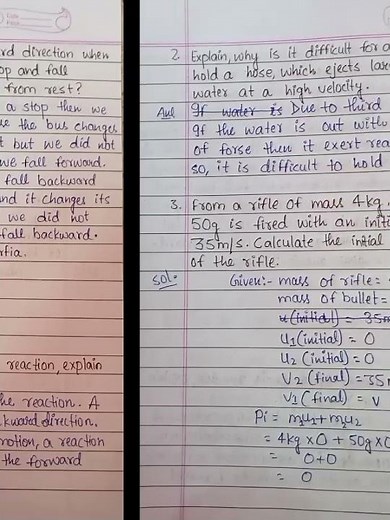 rd direction when
op and fall
from rest?
a stop then we
se the bus changes
t but we did not
we fall forward.
fall backward
nd it changes its
we did not
fall backward.
rfia.
reaction, explain
he reaction. A
kward direction.
motion, a reaction
the forward
2. Explain, why is it difficult for a
hold a hose, which ejects lar
water at a high velocity.
Ans If water is Due to third
If the water is out with
of forse then it exert rea
so, it is difficult to hold
3. From a rifle of mass 4kg.
50g is fired with an initi
35m/s. Calculate the initial
of the rifle.
sol. Given:- mass of rifle =
mass of bullet =
u(initial) = 35m
u1(initial) = 0
u2(initial) = 0
V2(final) = 35
V1(final) = V
Pi = m1u1 + m2u2
= 4kg × 0 + 50g × 0
= 0+0
= 0